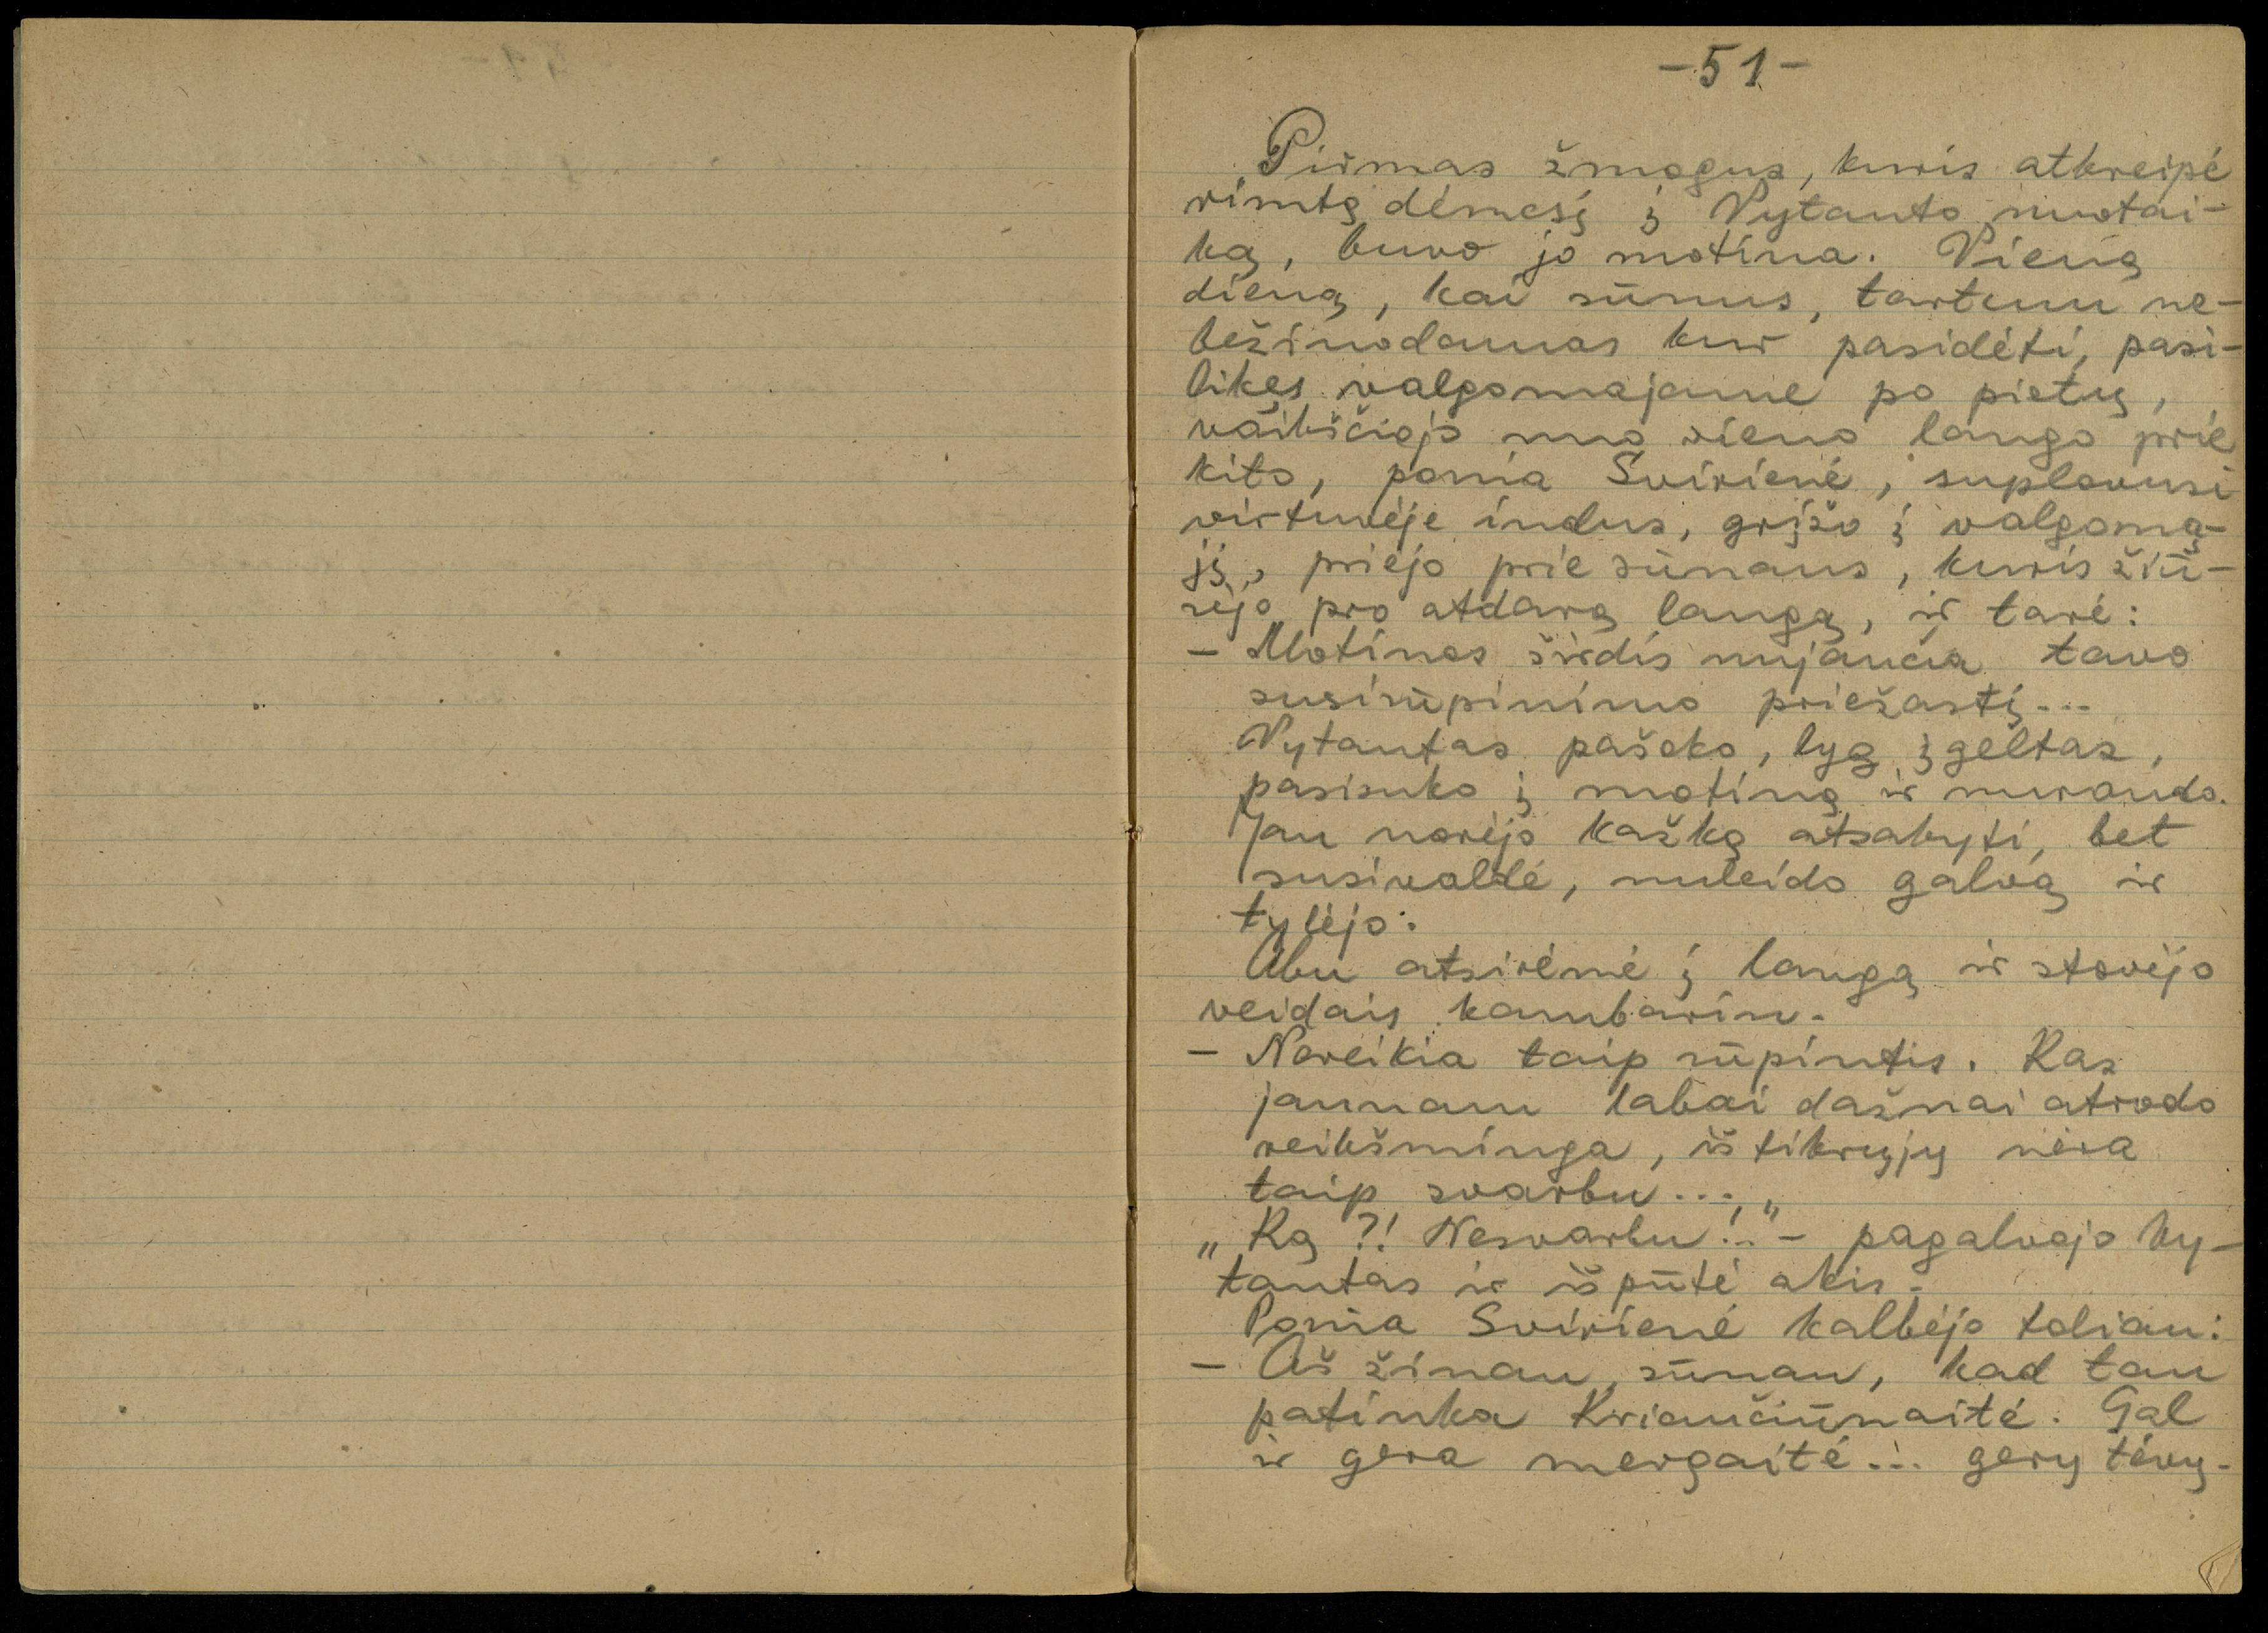 -51-
Pirmas žmogus, kuris atkreipė
rimtą dėmesį į Vytauto nuotai-
ką, buvo jo motina. Vieną
dieną, kai sūnus, tartum ne-
bežinodamas kur pasidėti, pasi-
likęs valgomajame po pietų,
vaikščiojo nuo vieno lango prie
kito, ponia Svirienė, suplovusi
virtuvėje indus, grįžo į valgomą-
jį, priėjo prie sūnaus, kuris žiū-
rėjo pro atdarą langą, ir tarė:
- Motinos širdis nujaučia tavo
susirūpinimo priežastį...
Vytautas pašoko, lyg įgeltas,
pasisuko į motiną ir nuraudo.
Jau norėjo kažką atsakyti, bet
susivaldė, nuleido galvą ir
tylėjo.
Abu atsirėmė į langą ir stovėjo
veidais kambarin.
- Nereikia taip rūpintis. Kas
jaunam labai dažnai atrodo
reikšminga, iš tikrųjų nėra
taip svarbu...
„Ką?! Nesvarbu!.." - pagalvojo Vy-
tautas ir išpūtė akis.
Ponia Svirienė kalbėjo toliau:
- Aš žinau, sūnau, kad tau
patinka Kriaučiūnaitė. Gal
ir gera mergaitė... gerų tėvų.